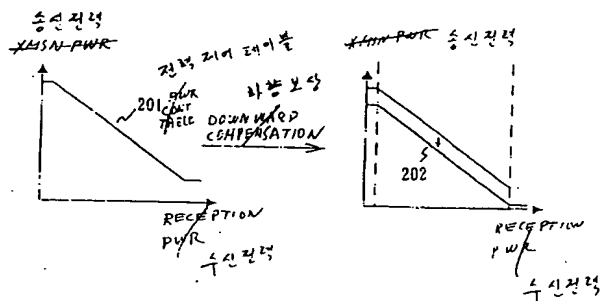 송신전력
XMSN PWR
전력 제어 테이블
201
PWR
CONT
TABLE
하향 보상
DOWNWARD
COMPENSATION
RECEPTION
PWR
수신전력
XMSN PWR 송신전력
202
RECEPTION
PWR
수신전력